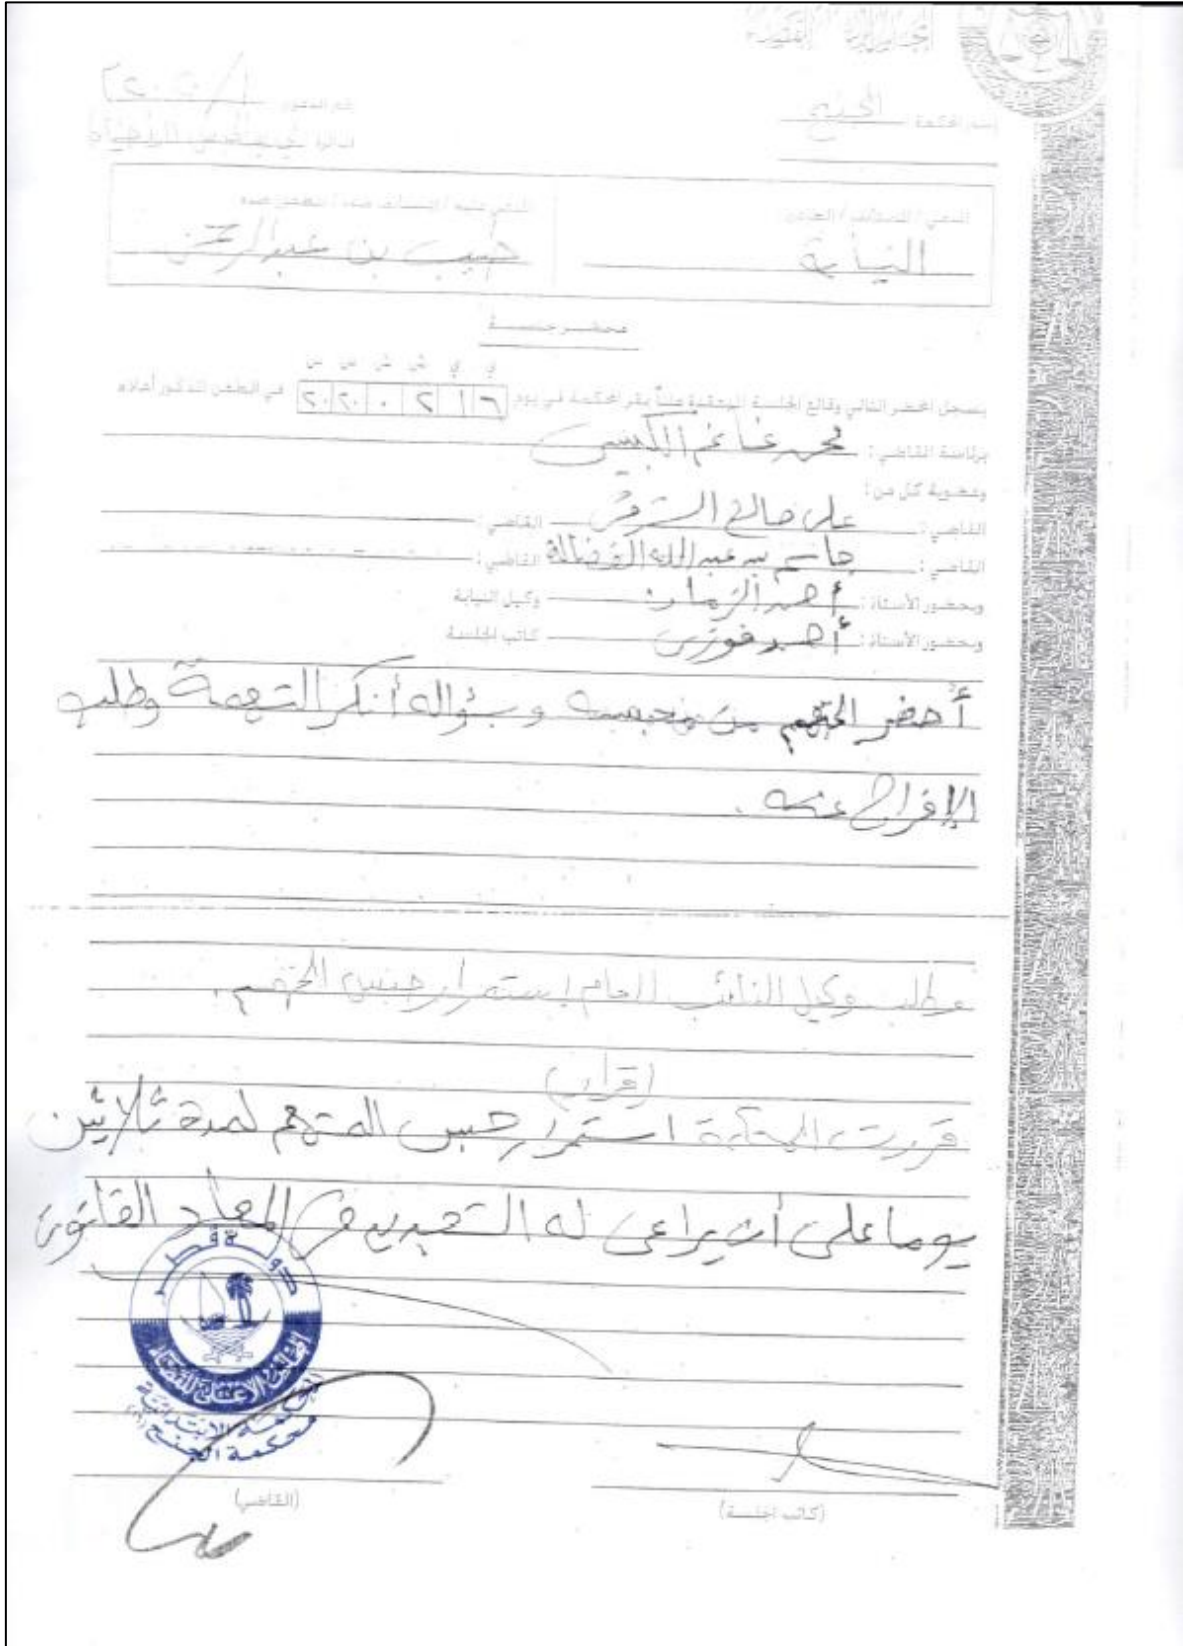 المجلس الأعلى للقضاء
إسم المحكمة الجنح
رقم الدعوى
الدائرة
المدعي / المستأنف / الطاعن:
النيابة
المدعى عليه / المستأنف ضده / المطعون ضده
حبيب بن عبدالرحمن
محضر جلسة
ي ي ش ش س س
يسجل المحضر التالي وقائع الجلسة المنعقدة علناً بمقر المحكمة في يوم ١٦ ٠٢ ٢٠٢٠ في الطعن المذكور أعلاه
برئاسة القاضي: محمد غانم الكبيسي
وعضوية كل من:
القاضي: علي صالح القاضي:
القاضي: جاسم بن عبدالله الفضالة القاضي:
وبحضور الأستاذ: أحمد وكيل النيابة
وبحضور الأستاذ: أحمد فوزي كاتب الجلسة
أحضر المتهم من محبسه وبسؤاله أنكر التهمة وطلب
الإفراج عنه.
وطلب وكيل النائب العام إستمرار حبس المتهم.
(قرار)
قررت المحكمة استمرار حبس المتهم لمدة ثلاثين
يوما على أن يراعى له التجديد في الميعاد القانوني
دولة قطر
المجلس الأعلى للقضاء
المحكمة الابتدائية
محكمة الجنح
(القاضي)
(كاتب الجلسة)